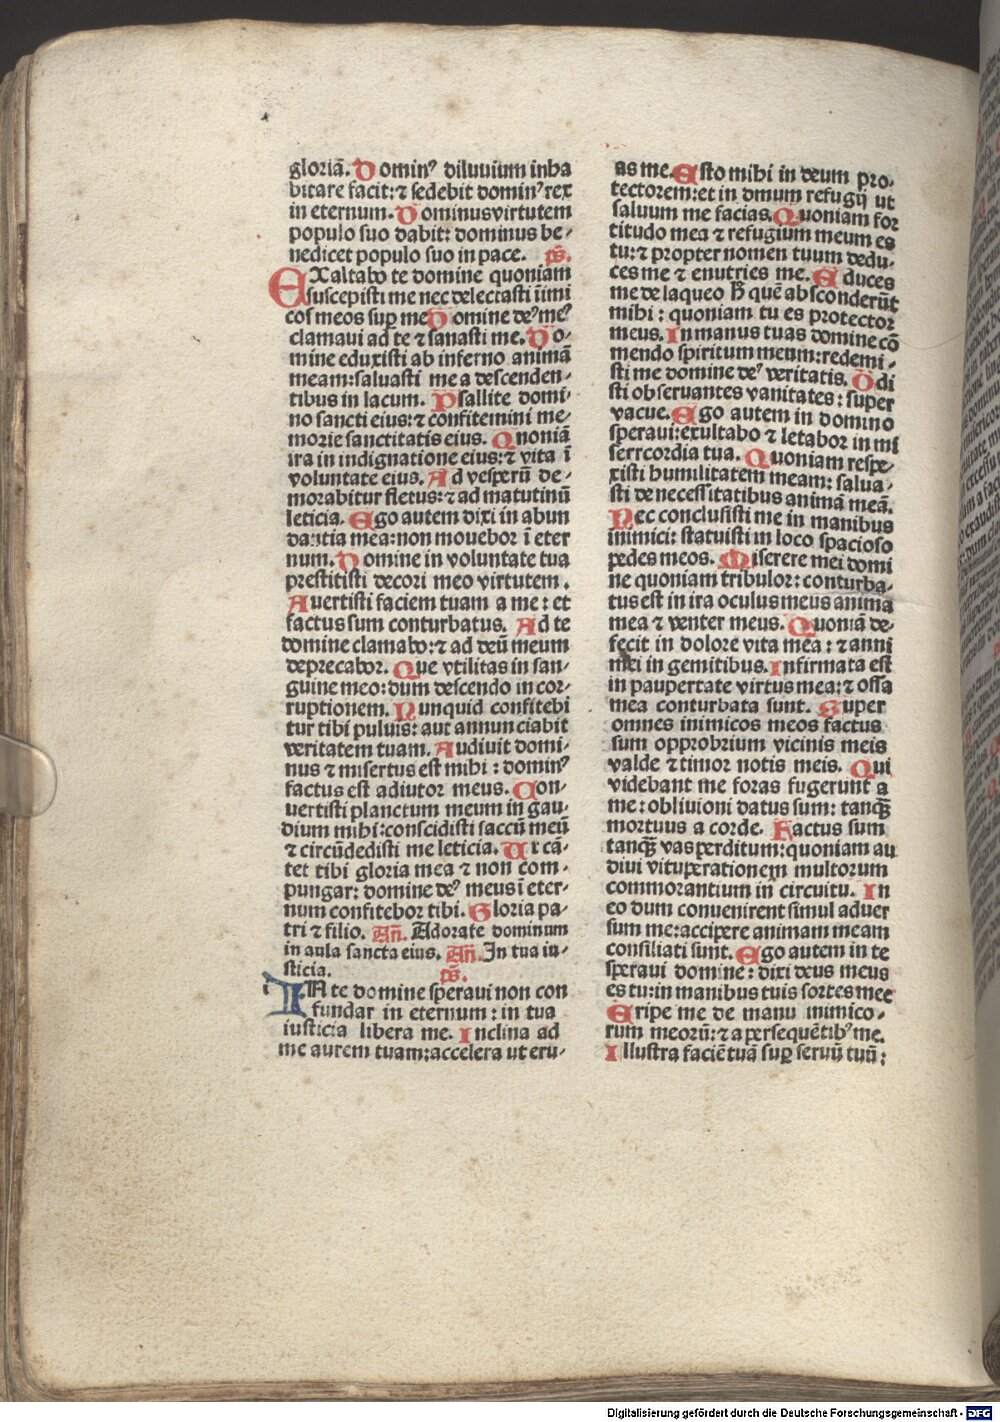 gloriā. Dominꝰ diluuium inha
bitare facit: ⁊ sedebit dominꝰ rex
in eternum. Dominus virtutem
populo suo dabit: dominus be-
nedicet populo suo in pace. ps̄.
EXaltabo te domine quoniam
suscepisti me nec delectasti inimi
cos meos suꝑ me Domine deꝰ meꝰ
clamaui ad te ⁊ sanasti me. Do-
mine eduxisti ab inferno animā
meam: saluasti me a descenden-
tibus in lacum. Psallite domi-
no sancti eius: ⁊ confitemini me-
morie sanctitatis eius. Qnoniā
ira in indignatione eius: ⁊ vita ī
voluntate eius. Ad vesperū de-
morabitur fletus: ⁊ ad matutinū
leticia. Ego autem dixi in abun
dantia mea: non mouebor ī eter
num. Domine in voluntate tua
prestitisti decori meo virtutem.
Auertisti faciem tuam a me: et
factus sum conturbatus. Ad te
domine clamabo: ⁊ ad deū meum
deprecabor. Que vtilitas in san-
guine meo: dum descendo in cor-
ruptionem. Nunquid confitebi
tur tibi puluis: aut annunciabit
veritatem tuam. Audiuit domi-
nus ⁊ misertus est mihi: dominꝰ
factus est adiutor meus. Con-
uertisti planctum meum in gau
dium mihi: conscidisti saccū meū
⁊ circūdedisti me leticia. Ut cā-
tet tibi gloria mea ⁊ non com-
pungar: domine deꝰ meus ī eter-
num confitebor tibi. Gloria pa-
tri ⁊ filio. An̄. Adorate dominum
in aula sancta eius. An̄. In tua iu-
sticia. ps̄.
i IN te domine speraui non con
fundar in eternum: in tua
iusticia libera me. Inclina ad
me aurem tuam: accelera ut eru-
as me. Esto mihi in deum pro-
tectorem: et in domum refugij ut
saluum me facias. Quoniam for
titudo mea ⁊ refugium meum es
tu: ⁊ propter nomen tuum dedu-
ces me ⁊ enutries me. Educes
me de laqueo h̄ quē absconderūt
mihi: quoniam tu es protector
meus. In manus tuas domine cō
mendo spiritum meum: redemi-
sti me domine deꝰ veritatis. Odi
sti obseruantes vanitates: super
vacue. Ego autem in domino
speraui: exultabo ⁊ letabor in mi
sericordia tua. Quoniam respe-
xisti humilitatem meam: salua-
sti de necessitatibus animā meā.
Nec conclusisti me in manibus
inimici: statuisti in loco spacioso
pedes meos. Miserere mei domi
ne quoniam tribulor: conturba-
tus est in ira oculus meus anima
mea ⁊ venter meus. Quoniā de-
fecit in dolore vita mea: ⁊ anni
mei in gemitibus. Infirmata est
in paupertate virtus mea: ⁊ ossa
mea conturbata sunt. Super
omnes inimicos meos factus
sum opprobrium vicinis meis
valde ⁊ timor notis meis. Qui
videbant me foras fugerunt a
me: obliuioni datus sum: tanꝙ̄
mortuus a corde. Factus sum
tanꝙ̄ vas perditum: quoniam au
diui vituperationem multorum
commorantium in circuitu. In
eo dum conuenirent simul aduer
sum me: accipere animam meam
consiliati sunt. Ego autem in te
speraui domine: dixi deus meus
es tu: in manibus tuis sortes mee
Eripe me de manu inimico-
rum meorū: ⁊ a persequētibꝰ me.
Illustra faciē tuā suꝑ seruū tuū:
Digitalisierung gefördert durch die Deutsche Forschungsgemeinschaft - DFG